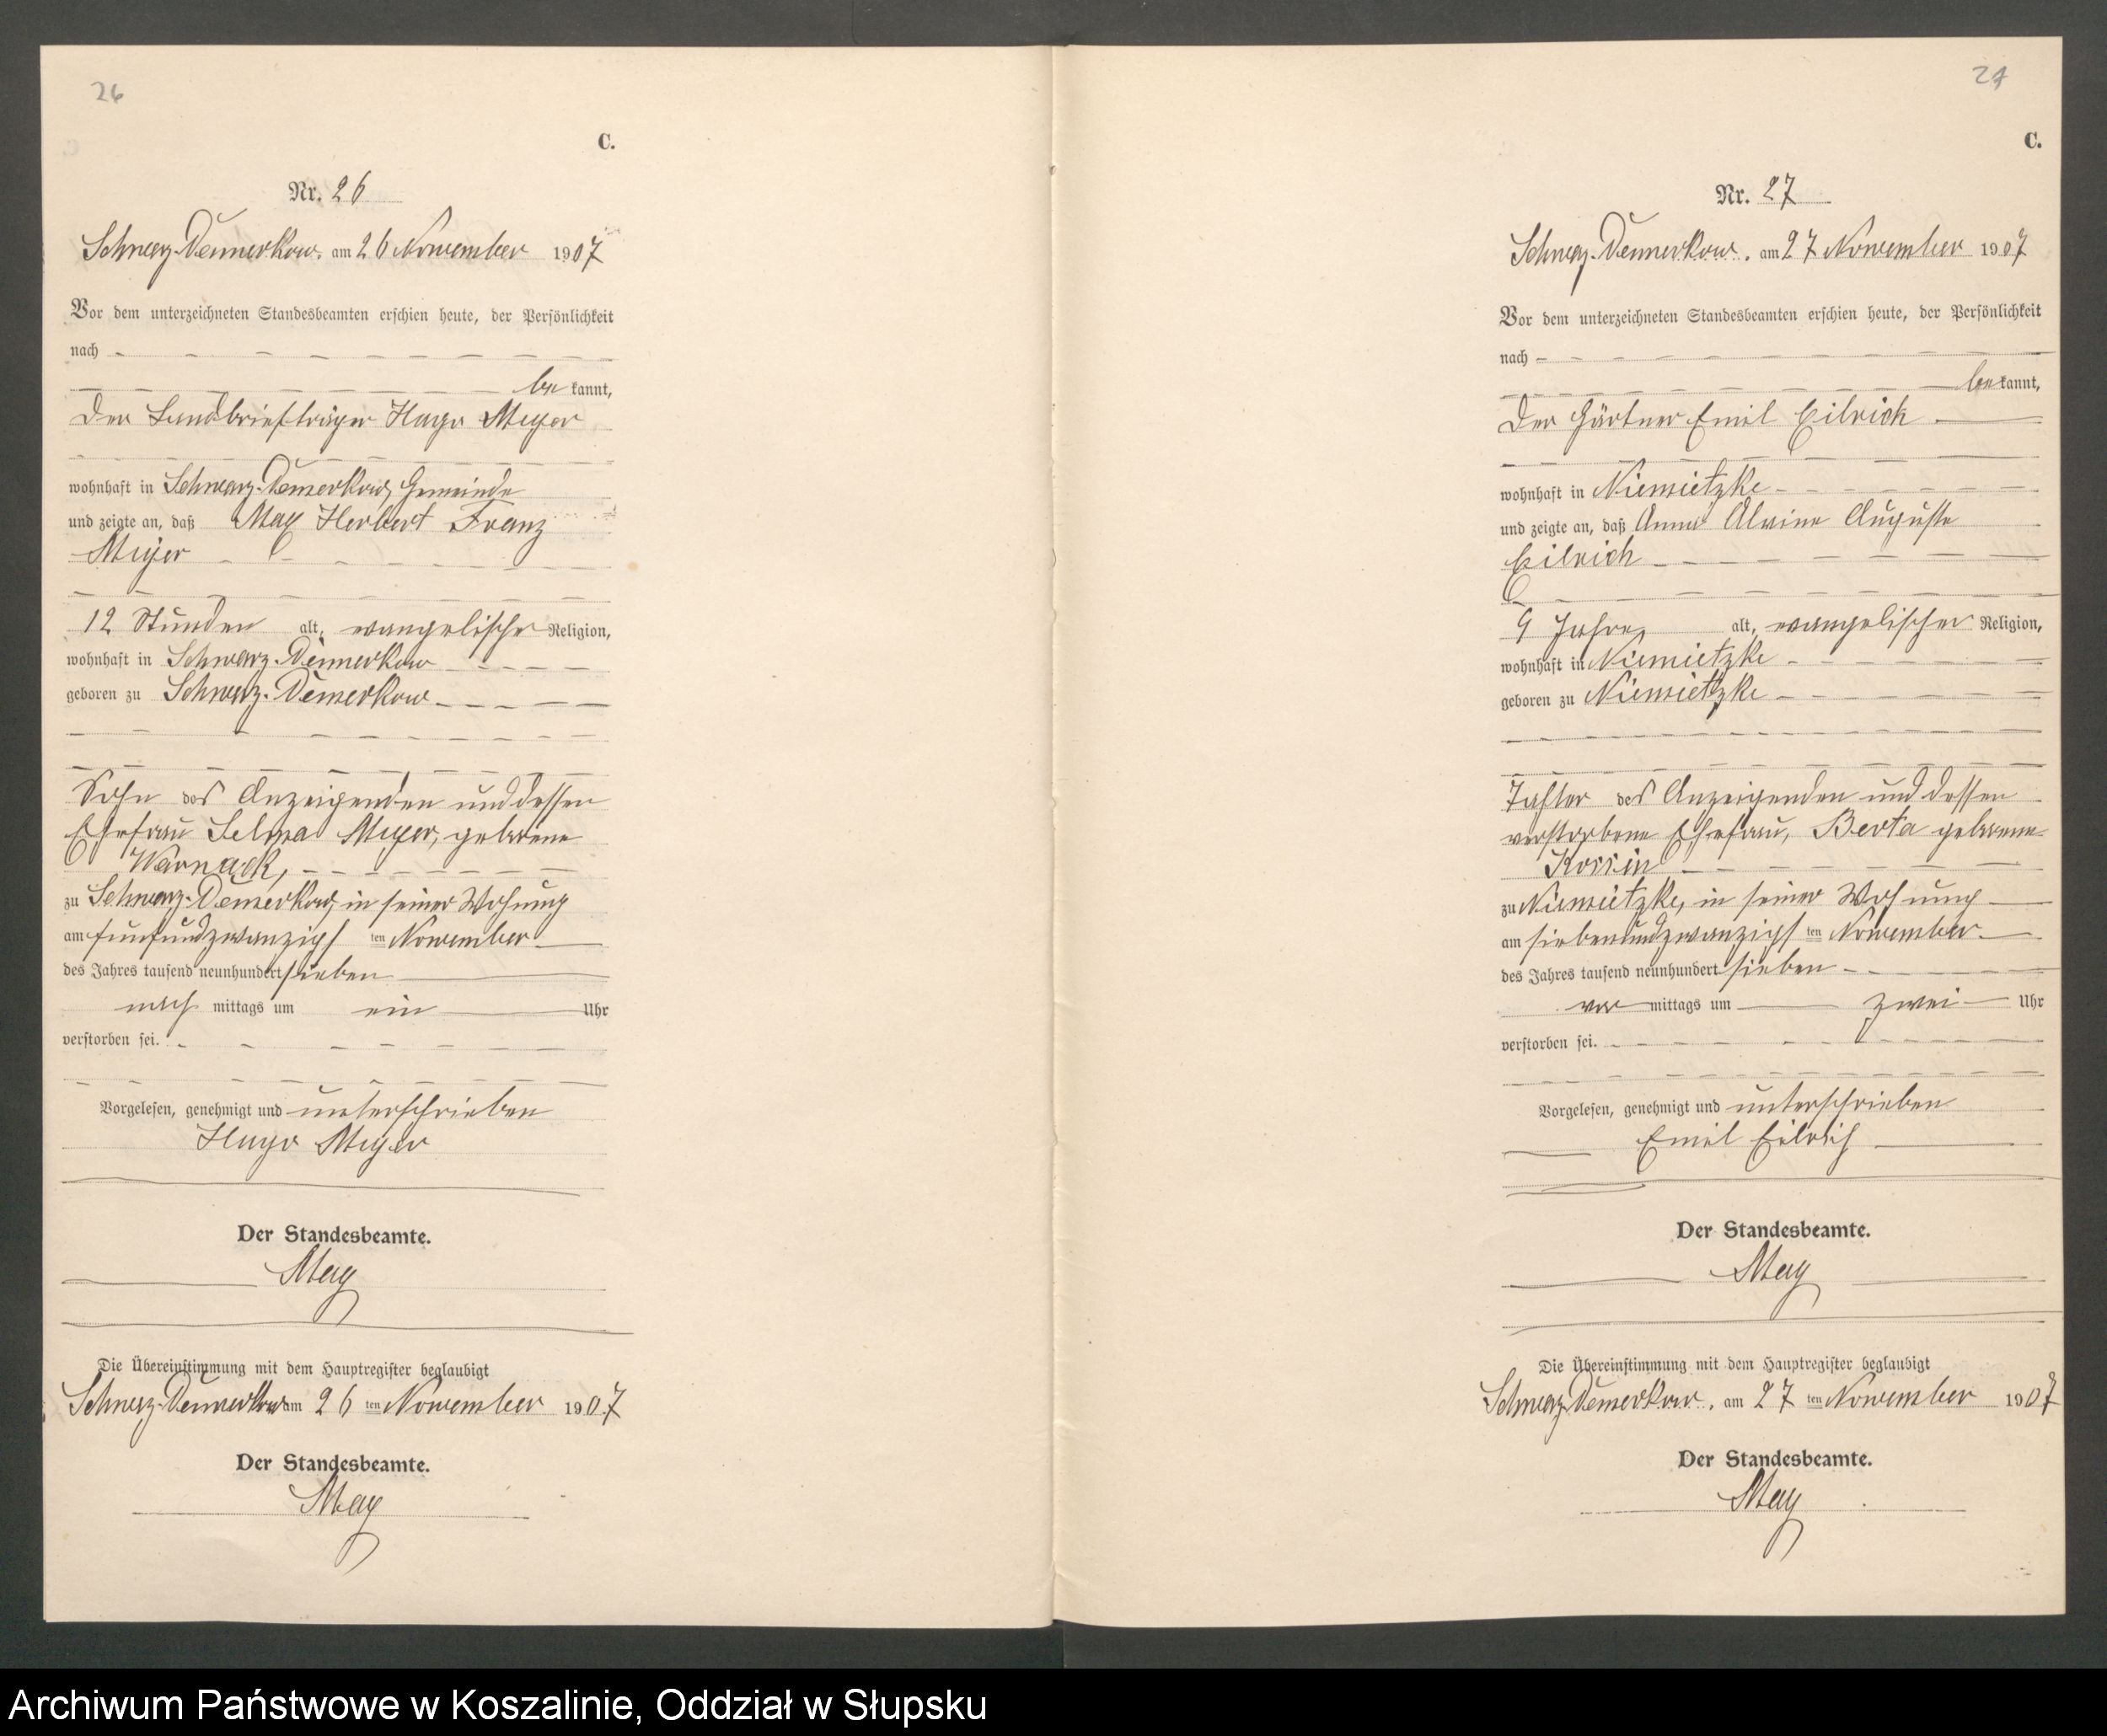 26
C.
Nr. 26
Schwarz-Damerkow. am 26 November 1907
Vor dem unterzeichneten Standesbeamten erschien heute, der Persönlichkeit
nach
be kannt,
der Landbriefträger Hugo Meyer
wohnhaft in Schwarz-Damerkow, Gemeinde
und zeigte an, daß Max Herbert Franz
Meyer
12 Stunden alt, evangelischer Religion,
wohnhaft in Schwarz-Damerkow
geboren zu Schwarz-Damerkow
Sohn des Anzeigenden und dessen
Ehefrau Selma Meyer, geborene
Warnack,
zu Schwarz-Damerkow, in seiner Wohnung
am fünfundzwanzigs ten November
des Jahres tausend neunhundert sieben
nach mittags um ein Uhr
verstorben sei.
Vorgelesen, genehmigt und unterschrieben
Hugo Meyer
Der Standesbeamte.
May
Die Übereinstimmung mit dem Hauptregister beglaubigt
Schwarz-Damerkow am 26 ten November 1907
Der Standesbeamte.
May
27
C.
Nr. 27
Schwarz-Damerkow. am 27 November 1907
Vor dem unterzeichneten Standesbeamten erschien heute, der Persönlichkeit
nach
be kannt,
der Gärtner Emil Eilrich
wohnhaft in Niemietzke
und zeigte an, daß Anna Alwine Auguste
Eilrich
9 Jahre, alt, evangelischer Religion,
wohnhaft in Niemietzke
geboren zu Niemietzke
Tochter des Anzeigenden und dessen
verstorbene Ehefrau, Berta geborene
Kossin
zu Niemietzke, in seiner Wohnung
am siebenundzwanzigs ten November
des Jahres tausend neunhundert sieben
vor mittags um zwei Uhr
verstorben sei.
Vorgelesen, genehmigt und unterschrieben
Emil Eilrich
Der Standesbeamte.
May
Die Übereinstimmung mit dem Hauptregister beglaubigt
Schwarz-Damerkow. am 27 ten November 1907
Der Standesbeamte.
May
Archiwum Państwowe w Koszalinie, Oddział w Słupsku